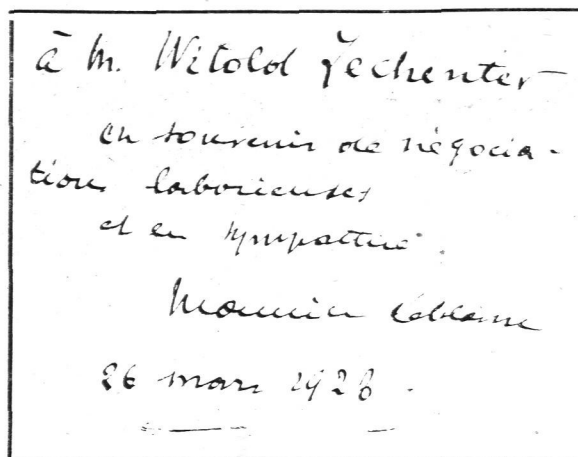 à M. Witold Zechenter
en souvenir de négocia-
tions laborieuses
et en sympathie.
Maurice Leblanc
26 mars 1928.